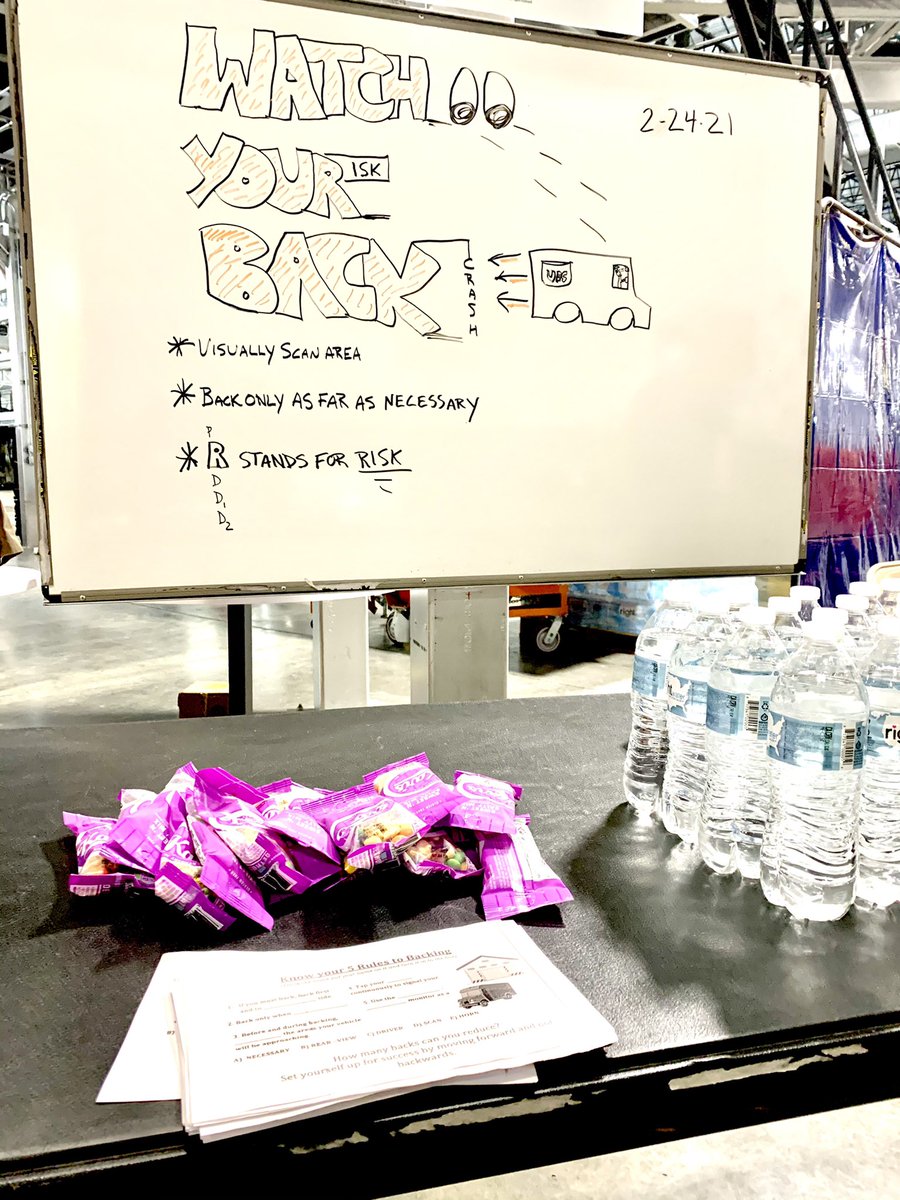 WATCH
2-24-21
YOUR
ISK
BACK
CRASH
UPS
* VISUALLY SCAN AREA
* BACK ONLY AS FAR AS NECESSARY
P
* R STANDS FOR RISK
D
D1
D2
right
Know your 5 Rules to Backing
1. If you must back, back first
and to ______ side.
2. Back only when ______
3. Before and during backing,
______ the areas your vehicle
will be approaching
4. Tap your ______
continuously to signal your
5. Use the ______ monitor as a
A) NECESSARY B) REAR VIEW C) DRIVER D) SCAN E) HORN
How many backs can you reduce?
Set yourself up for success by moving forward and not
backwards.